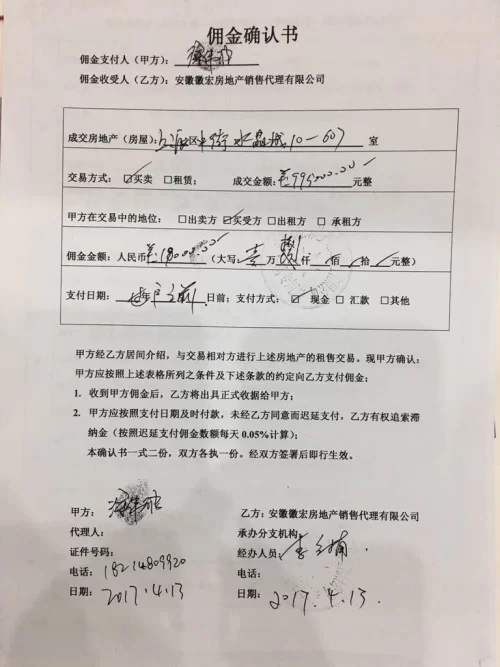 佣金确认书
佣金支付人（甲方）：
佣金收受人（乙方）：安徽徽宏房地产销售代理有限公司
成交房地产（房屋）：水晶城10-607 室
交易方式：☑买卖 □租赁； 成交金额：995000.00 元整
甲方在交易中的地位：□出卖方 ☑买受方 □出租方 □ 承租方
佣金金额：人民币18000.00（大写：壹万捌仟 佰 拾 元整）
支付日期： 日前；支付方式：☑ 现金 □ 汇款 □其他
甲方经乙方居间介绍，与交易相对方进行上述房地产的租售交易。现甲方确认：
甲方应按照上述表格所列之条件及下述条款的约定向乙方支付佣金；
1. 收到甲方佣金后，乙方将出具正式收据给甲方；
2. 甲方应按照支付日期及时付款，未经乙方同意而迟延支付，乙方有权追索滞
纳金（按照迟延支付佣金数额每天 0.05%计算）；
本确认书一式二份，双方各执一份。经双方签署后即行生效。
甲方：
代理人：
证件号码：
电话：18214809920
日期：2017.4.13
乙方：安徽徽宏房地产销售代理有限公司
承办分支机构：
经办人员：
电话：
日期：2017.4.13.